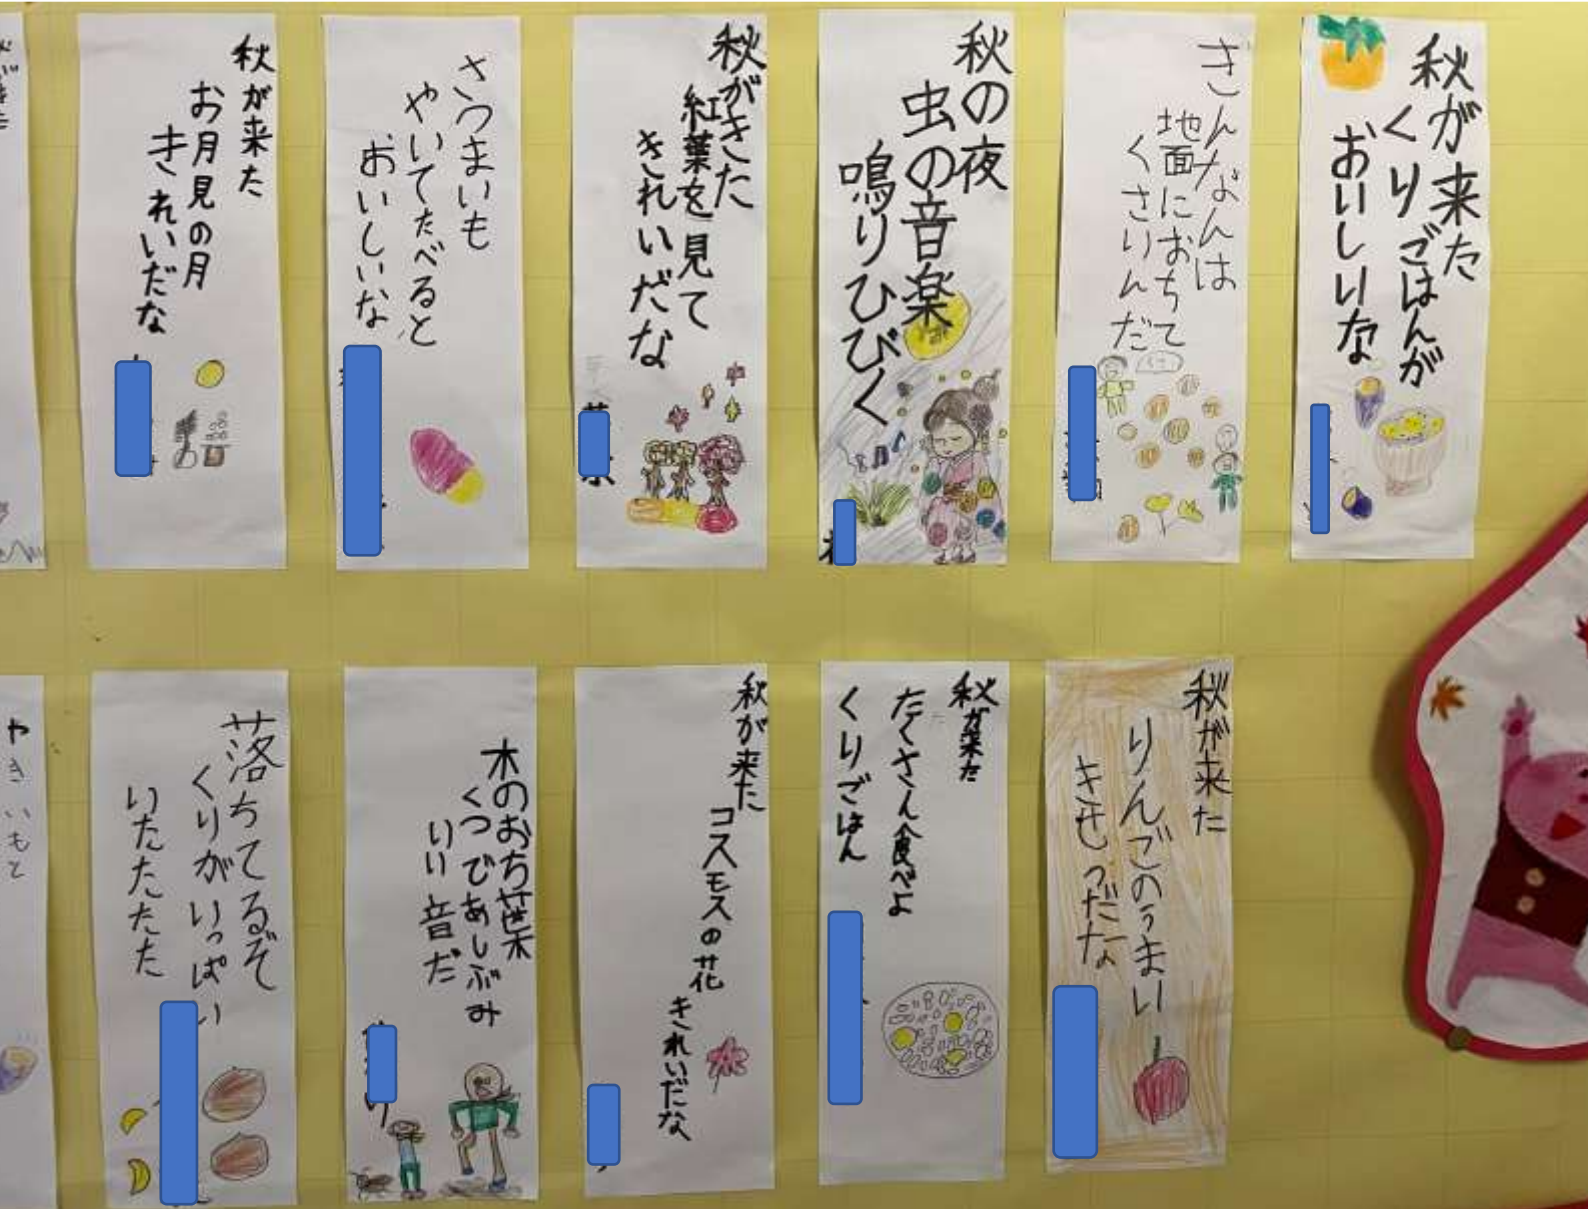 秋が来た
くりごはんが
おいしいな
ぎんなんは
地面におちて
くさりんだ
秋の夜
虫の音楽
鳴りひびく
秋がきた
紅葉を見て
きれいだな
さつまいも
やいてたべると
おいしいな
秋が来た
お月見の月
きれいだな
秋が来た
りんごのうまい
きせつだな
秋が来た
たくさん食べよ
くりごはん
秋が来た
コスモスの花
きれいだな
木のおち葉
くつであしぶみ
いい音だ
落ちてるぞ
くりがいっぱい
いたたたた
やきいもと